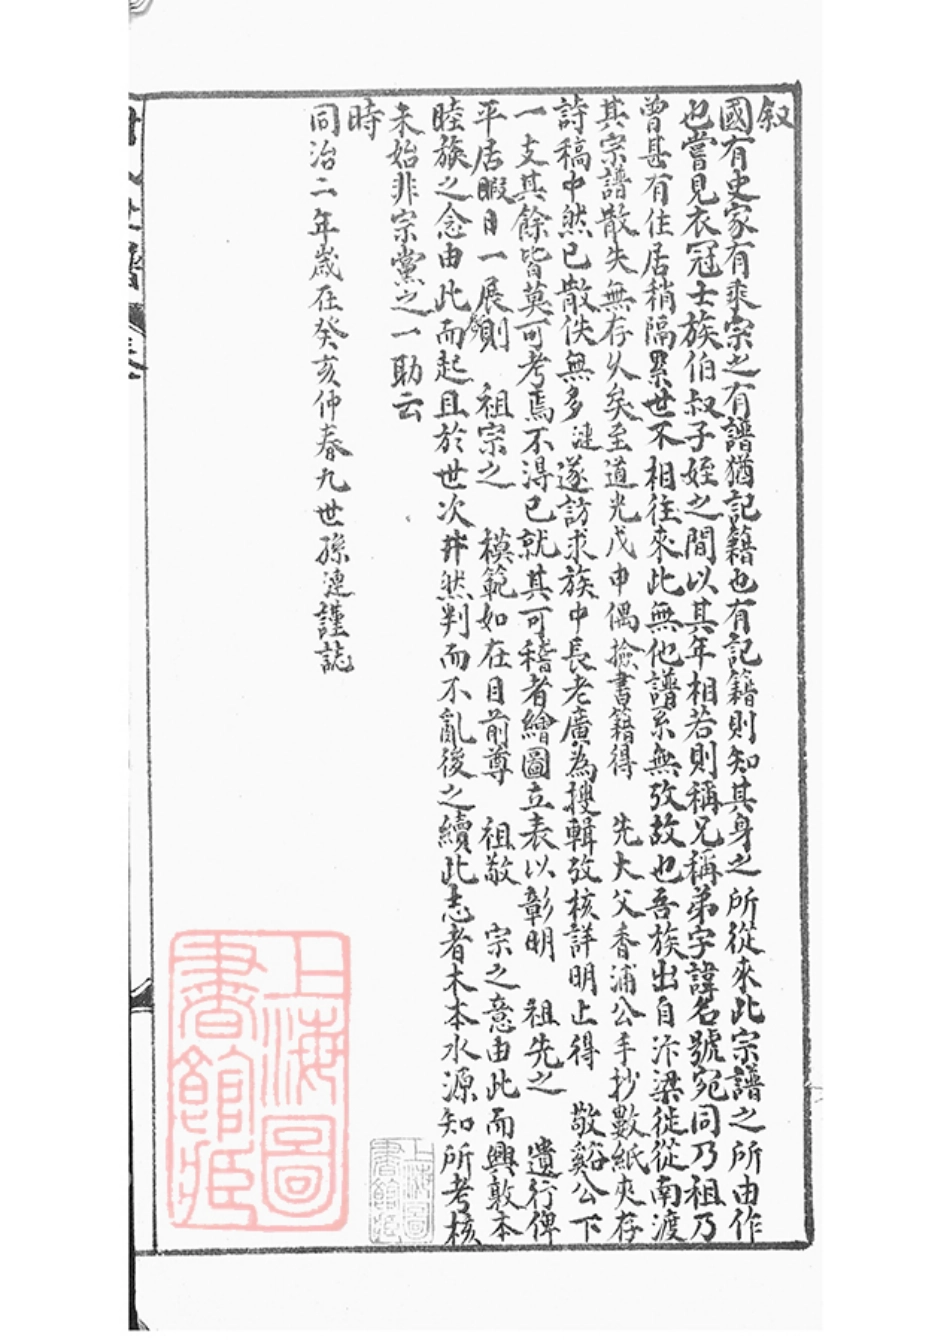 叙
國有史家有乘宗之有譜猶記籍也有記籍則知其身之所從來此宗譜之所由作
也嘗見衣冠士族伯叔子姪之間以其年相若則稱兄稱弟字諱名號宛同乃祖乃
曾甚有住居稍隔累世不相往來此無他譜系無攷故也吾族出自汴梁徙從南渡
其宗譜散失無存久矣至道光戊申偶撿書籍得　先大父香浦公手抄數紙夾存
詩稿中然已散佚無多漣遂訪求族中長老廣為搜輯攷核詳明上得　敬谿公下
一支其餘皆莫可考焉不得已就其可稽者繪圖立表以彰明　祖先之　遺行俾
平居暇日一展則　祖宗之　模範如在目前尊　祖敬　宗之意由此而興敦本
睦族之念由此而起且於世次井然判而不亂後之續此志者木本水源知所考核
未始非宗黨之一助云
時
同治二年歲在癸亥仲春九世孫漣謹誌
上海圖書館藏
上海圖書館藏